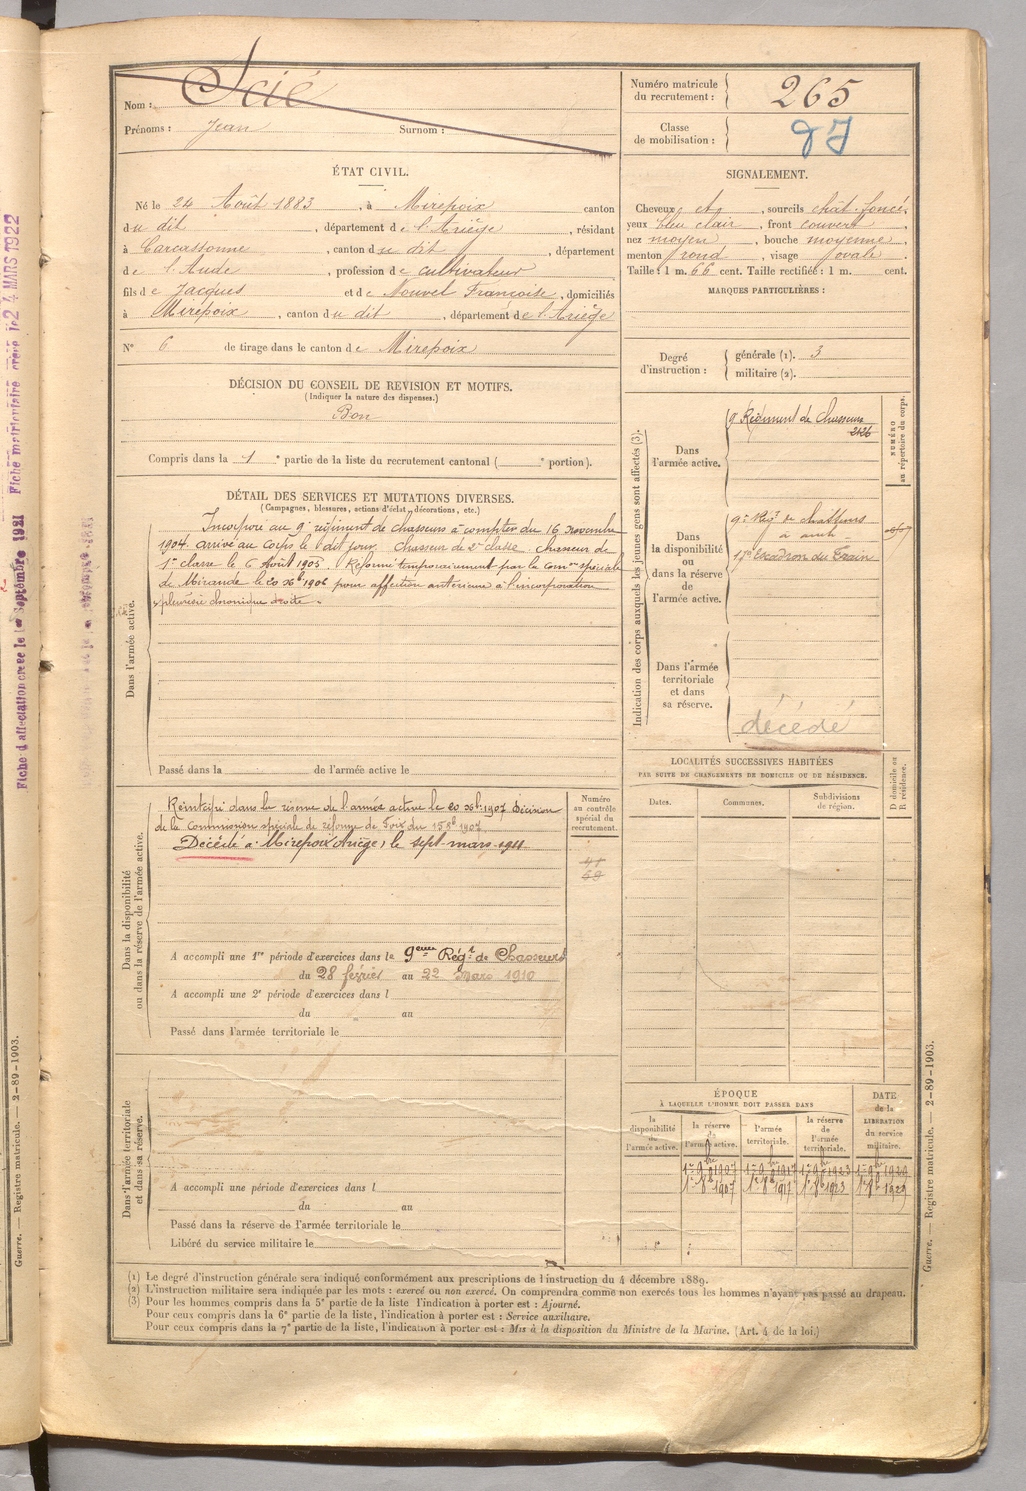 Nom : Scié
Prénoms : Jean Surnom :
Numéro matricule du recrutement : 265
Classe de mobilisation : 07
ÉTAT CIVIL.
Né le 24 Août 1883, à Mirepoix canton
du dit, département de l'Ariège, résidant
à Carcassonne, canton du dit, département
de l'Aude, profession de cultivateur
fils de Jacques et de Nouvel Françoise, domiciliés
à Mirepoix, canton du dit, département de l'Ariège
N° 6 de tirage dans le canton de Mirepoix
DÉCISION DU CONSEIL DE REVISION ET MOTIFS.
(Indiquer la nature des dispenses.)
Bon
Compris dans la 1e partie de la liste du recrutement cantonal ( e portion).
SIGNALEMENT.
Cheveux et, sourcils chât. foncé,
yeux bleu clair, front couvert,
nez moyen, bouche moyenne,
menton rond, visage ovale.
Taille : 1 m. 66 cent. Taille rectifiée : 1 m. cent.
MARQUES PARTICULIÈRES :
Degré d'instruction : générale (1). 3
militaire (2).
DÉTAIL DES SERVICES ET MUTATIONS DIVERSES.
(Campagnes, blessures, actions d'éclat, décorations, etc.)
Dans l'armée active.
Incorporé au 9e régiment de chasseurs à compter du 16 novembre
1904. arrivé au corps le dit jour, chasseur de 2e classe. Chasseur de
1e classe le 6 Août 1905. Réformé temporairement par la Comon spéciale
de Mirande le 20 Xbre 1906 pour affection antérieure à l'incorporation
pleurésie chronique droite.
Passé dans la de l'armée active le
Indication des corps auxquels les jeunes gens sont affectés (3).
NUMÉRO au répertoire du corps.
Dans l'armée active.
9e Régiment de Chasseurs
2126
Dans la disponibilité ou dans la réserve de l'armée active.
9e Régt de chasseurs
à auch
17e Escadron du Train
Dans l'armée territoriale et dans sa réserve.
décédé
Dans la disponibilité ou dans la réserve de l'armée active.
Numéro au contrôle spécial du recrutement.
Réintégré dans la réserve de l'armée active le 20 Xbre 1907 Décision
de la Commission spéciale de réforme de Foix du 15 8bre 1907
Décédé à Mirepoix (Ariège) le sept mars 1911
A accompli une 1re période d'exercices dans le 9eme Régt de Chasseurs
du 28 février au 22 Mars 1910
A accompli une 2e période d'exercices dans l
du au
Passé dans l'armée territoriale le
LOCALITÉS SUCCESSIVES HABITÉES
PAR SUITE DE CHANGEMENTS DE DOMICILE OU DE RÉSIDENCE.
Dates. Communes. Subdivisions de région. D domicile ou R résidence.
Dans l'armée territoriale et dans sa réserve.
A accompli une période d'exercices dans l
du au
Passé dans la réserve de l'armée territoriale le
Libéré du service militaire le
ÉPOQUE
À LAQUELLE L'HOMME DOIT PASSER DANS
la disponibilité de l'armée active. la réserve de l'armée active. l'armée territoriale. la réserve de l'armée territoriale.
DATE de la LIBÉRATION du service militaire.
1er 9bre 1907 1er 9bre 1917 1er 9bre 1923 1er 9bre 1929
1er 8bre 1907 1er 8bre 1917 1er 8bre 1923 1er 8bre 1929
(1) Le degré d'instruction générale sera indiqué conformément aux prescriptions de l'instruction du 4 décembre 1889.
(2) L'instruction militaire sera indiquée par les mots : exercé ou non exercé. On comprendra comme non exercés tous les hommes n'ayant pas passé au drapeau.
(3) Pour les hommes compris dans la 5e partie de la liste l'indication à porter est : Ajourné.
Pour ceux compris dans la 6e partie de la liste, l'indication à porter est : Service auxiliaire.
Pour ceux compris dans la 7e partie de la liste, l'indication à porter est : Mis à la disposition du Ministre de la Marine. (Art. 4 de la loi.)
Guerre. — Registre matricule. — 2-89-1903.
Guerre. — Registre matricule. — 2-89-1903.
Fiche d'affectation créée le 1er Septembre 1921 Fiche matriculaire créée le 24 MARS 1922